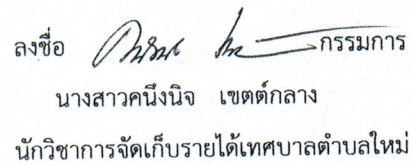 ลงชื่อ กรรมการ
นางสาวคนึงนิจ เขตต์กลาง
นักวิชาการจัดเก็บรายได้เทศบาลตำบลใหม่